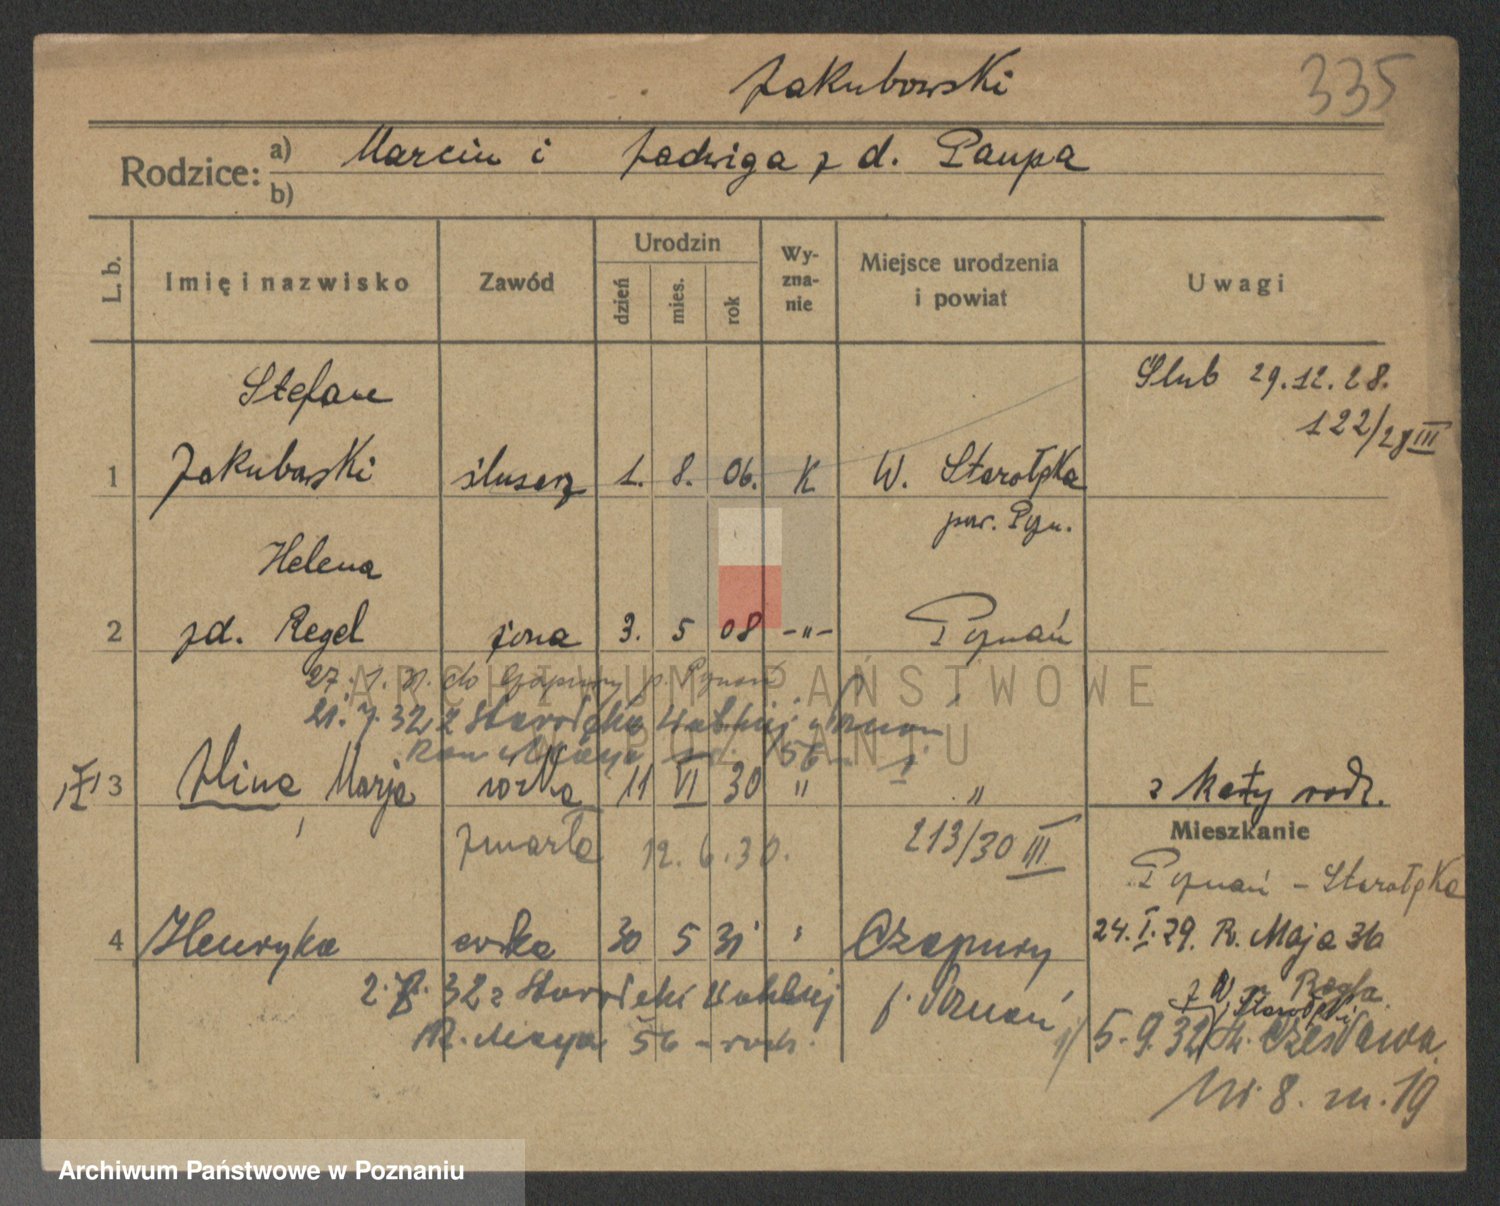 Jakubowski
335
Rodzice: a) Marcin i Jadwiga z d. Paupa
b)
L. b. Imię i nazwisko Zawód Urodzin dzień mies. rok Wyznanie Miejsce urodzenia i powiat Uwagi
Stefan
Ślub 29.12.28.
122/28 III
1 Jakubowski ślusarz 1. 8. 06. K W. Starołęka
pow. Pozn.
Helena
2 zd. Regel żona 3. 5 08 -"- Poznań
27. do Czapury p. Poznań
21. 7. 32 z Starołęki
56
3 Alina, Marja córka 11 VI 30 " " z Karty rodz.
zmarła 12. 6. 30. 213/30 III
Mieszkanie
Poznań - Starołęka
4 Henryka córka 30 5 31 " Czapury
24. I. 29. R. Maja 36
2. 32 z Starołęki p. Poznań
R. Maya 56 - rodz.
z Starołęki
5. 9. 32 Czesława
Nr. 8. m. 19
ARCHIWUM PAŃSTWOWE
W POZNANIU
Archiwum Państwowe w Poznaniu